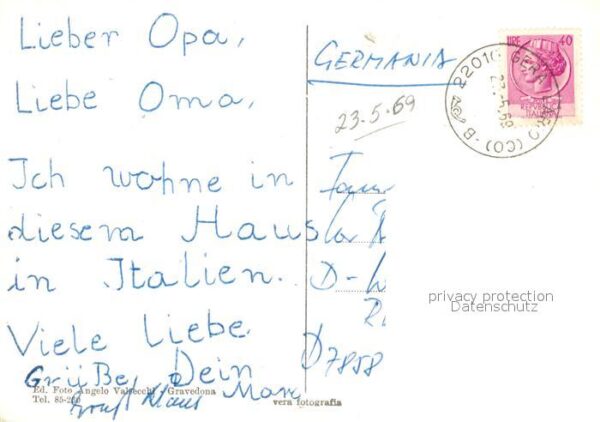 Lieber Opa,
Liebe Oma,
Ich wohne in
diesem Haus
in Italien.
Viele liebe
Grüße, Dein
Klaus
GERMANIA
23.5.69
LIRE 40
22010 GERA LARIO (CO) - B
23.5.69
D-
D7858
privacy protection
Datenschutz
Ed. Foto Angelo Valsecchi - Gravedona
Tel. 85-
vera fotografia